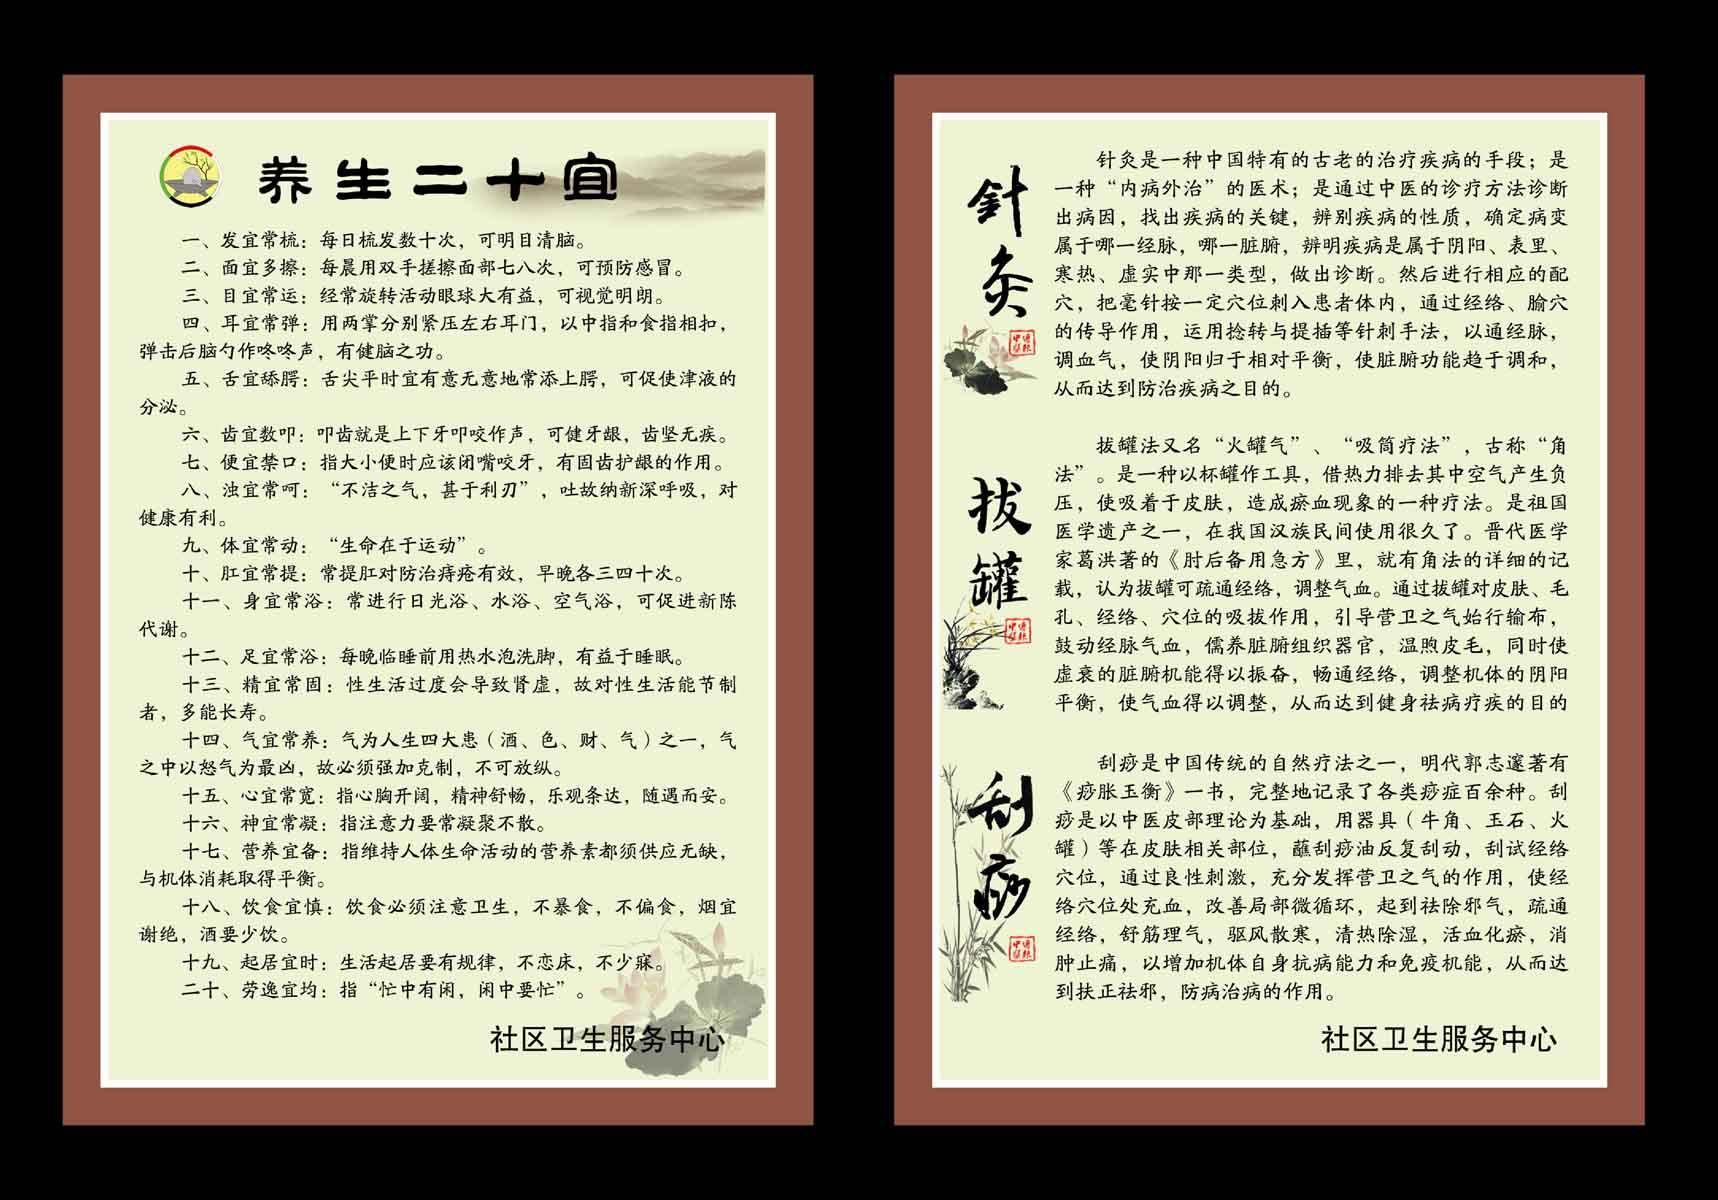 养生二十宜
一、发宜常梳：每日梳发数十次，可明目清脑。
二、面宜多擦：每晨用双手搓擦面部七八次，可预防感冒。
三、目宜常运：经常旋转活动眼球大有益，可视觉明朗。
四、耳宜常弹：用两掌分别紧压左右耳门，以中指和食指相扣，
弹击后脑勺作咚咚声，有健脑之功。
五、舌宜舔腭：舌尖平时宜有意无意地常添上腭，可促使津液的
分泌。
六、齿宜数叩：叩齿就是上下牙叩咬作声，可健牙龈，齿坚无疾。
七、便宜禁口：指大小便时应该闭嘴咬牙，有固齿护龈的作用。
八、浊宜常呵：“不洁之气，甚于利刃”，吐故纳新深呼吸，对
健康有利。
九、体宜常动：“生命在于运动”。
十、肛宜常提：常提肛对防治痔疮有效，早晚各三四十次。
十一、身宜常浴：常进行日光浴、水浴、空气浴，可促进新陈
代谢。
十二、足宜常浴：每晚临睡前用热水泡洗脚，有益于睡眠。
十三、精宜常固：性生活过度会导致肾虚，故对性生活能节制
者，多能长寿。
十四、气宜常养：气为人生四大患（酒、色、财、气）之一，气
之中以怒气为最凶，故必须强加克制，不可放纵。
十五、心宜常宽：指心胸开阔，精神舒畅，乐观条达，随遇而安。
十六、神宜常凝：指注意力要常凝聚不散。
十七、营养宜备：指维持人体生命活动的营养素都须供应无缺，
与机体消耗取得平衡。
十八、饮食宜慎：饮食必须注意卫生，不暴食，不偏食，烟宜
谢绝，酒要少饮。
十九、起居宜时：生活起居要有规律，不恋床，不少寐。
二十、劳逸宜均：指“忙中有闲，闲中要忙”。
社区卫生服务中心
針灸
针灸是一种中国特有的古老的治疗疾病的手段；是
一种“内病外治”的医术；是通过中医的诊疗方法诊断
出病因，找出疾病的关键，辨别疾病的性质，确定病变
属于哪一经脉，哪一脏腑，辨明疾病是属于阴阳、表里、
寒热、虚实中那一类型，做出诊断。然后进行相应的配
穴，把毫针按一定穴位刺入患者体内，通过经络、腧穴
的传导作用，运用捻转与提插等针刺手法，以通经脉，
调血气，使阴阳归于相对平衡，使脏腑功能趋于调和，
从而达到防治疾病之目的。
拔罐
拔罐法又名“火罐气”、“吸筒疗法”，古称“角
法”。是一种以杯罐作工具，借热力排去其中空气产生负
压，使吸着于皮肤，造成瘀血现象的一种疗法。是祖国
医学遗产之一，在我国汉族民间使用很久了。晋代医学
家葛洪著的《肘后备用急方》里，就有角法的详细的记
载，认为拔罐可疏通经络，调整气血。通过拔罐对皮肤、毛
孔、经络、穴位的吸拔作用，引导营卫之气始行输布，
鼓动经脉气血，儒养脏腑组织器官，温煦皮毛，同时使
虚衰的脏腑机能得以振奋，畅通经络，调整机体的阴阳
平衡，使气血得以调整，从而达到健身祛病疗疾的目的
刮痧
刮痧是中国传统的自然疗法之一，明代郭志邃著有
《痧胀玉衡》一书，完整地记录了各类痧症百余种。刮
痧是以中医皮部理论为基础，用器具（牛角、玉石、火
罐）等在皮肤相关部位，蘸刮痧油反复刮动，刮试经络
穴位，通过良性刺激，充分发挥营卫之气的作用，使经
络穴位处充血，改善局部微循环，起到祛除邪气，疏通
经络，舒筋理气，驱风散寒，清热除湿，活血化瘀，消
肿止痛，以增加机体自身抗病能力和免疫机能，从而达
到扶正祛邪，防病治病的作用。
社区卫生服务中心